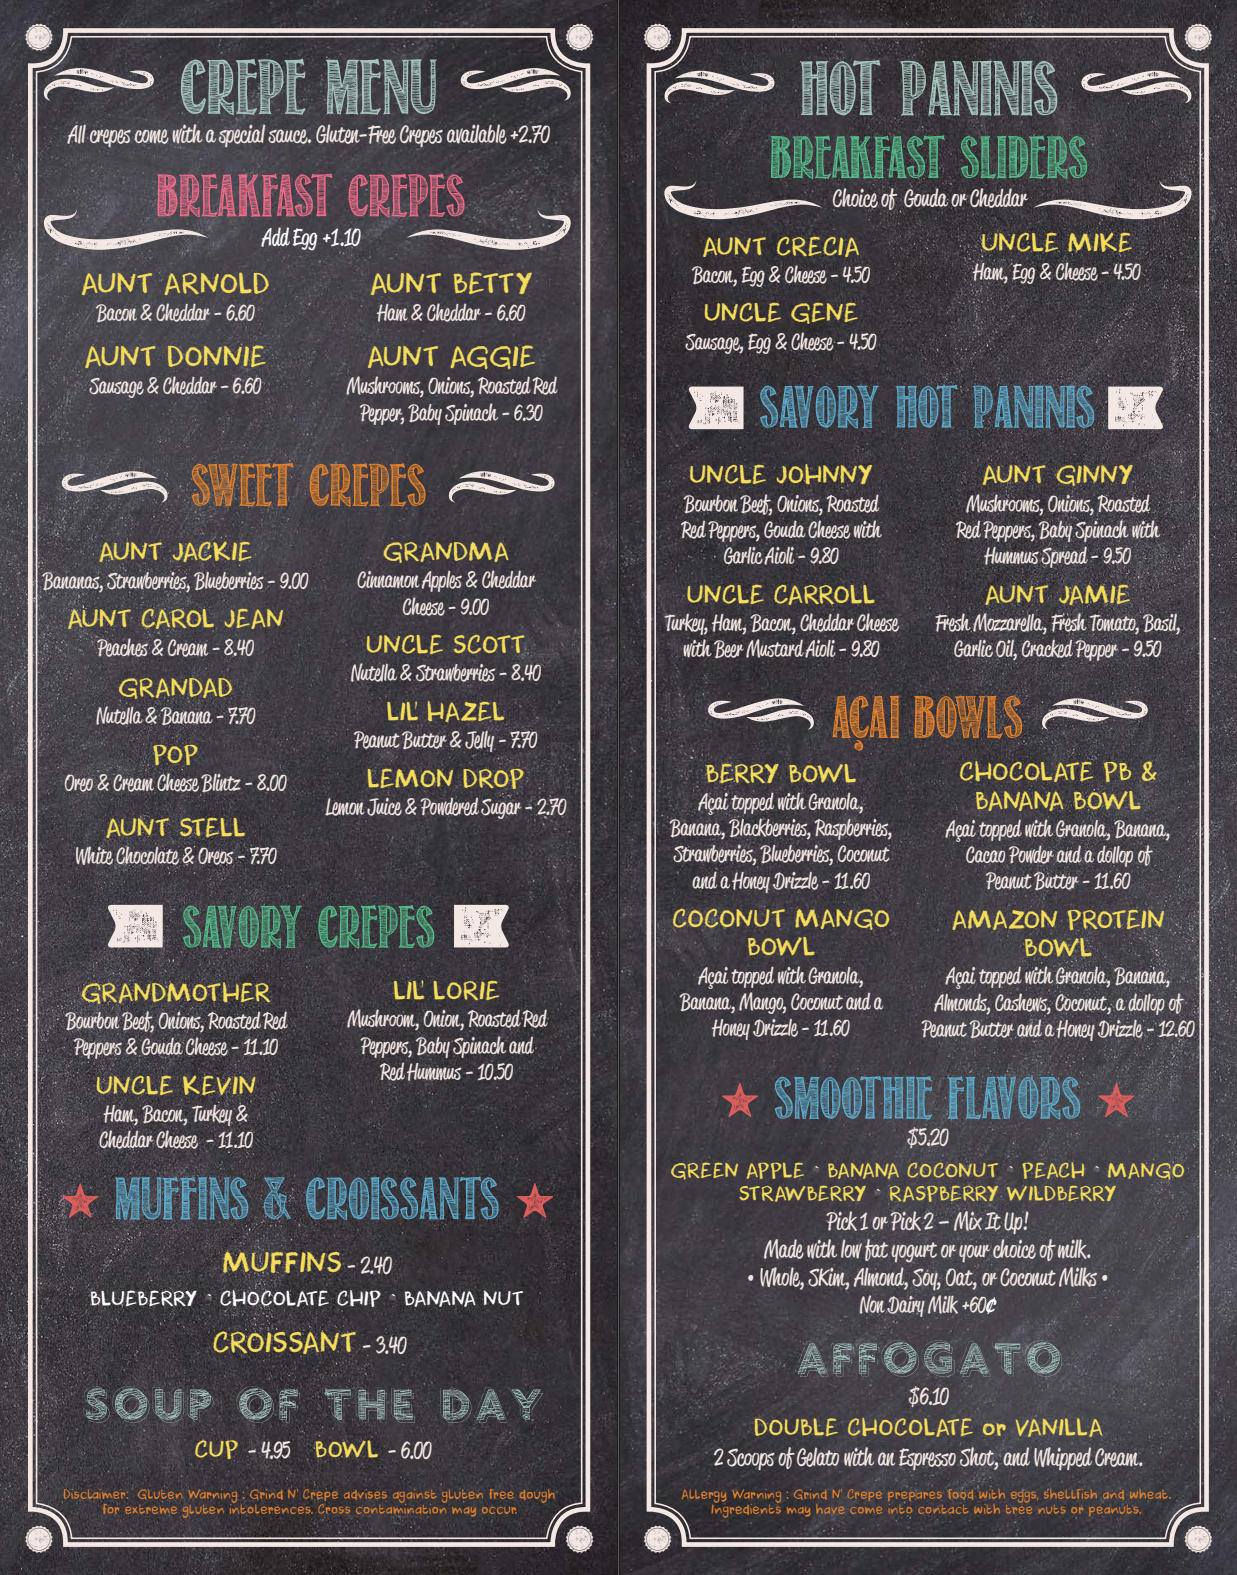 CREPE MENU
All crepes come with a special sauce. Gluten-Free Crepes available +2.70
BREAKFAST CREPES
Add Egg +1.10
AUNT ARNOLD
Bacon & Cheddar - 6.60
AUNT DONNIE
Sausage & Cheddar - 6.60
AUNT BETTY
Ham & Cheddar - 6.60
AUNT AGGIE
Mushrooms, Onions, Roasted Red
Pepper, Baby Spinach - 6.30
SWEET CREPES
AUNT JACKIE
Bananas, Strawberries, Blueberries - 9.00
AUNT CAROL JEAN
Peaches & Cream - 8.40
GRANDAD
Nutella & Banana - 7.70
POP
Oreo & Cream Cheese Blintz - 8.00
AUNT STELL
White Chocolate & Oreos - 7.70
GRANDMA
Cinnamon Apples & Cheddar
Cheese - 9.00
UNCLE SCOTT
Nutella & Strawberries - 8.40
LIL' HAZEL
Peanut Butter & Jelly - 7.70
LEMON DROP
Lemon Juice & Powdered Sugar - 2.70
SAVORY CREPES
GRANDMOTHER
Bourbon Beef, Onions, Roasted Red
Peppers & Gouda Cheese - 11.10
UNCLE KEVIN
Ham, Bacon, Turkey &
Cheddar Cheese - 11.10
LIL' LORIE
Mushroom, Onion, Roasted Red
Peppers, Baby Spinach and
Red Hummus - 10.50
MUFFINS & CROISSANTS
MUFFINS - 2.40
BLUEBERRY • CHOCOLATE CHIP • BANANA NUT
CROISSANT - 3.40
SOUP OF THE DAY
CUP - 4.95 BOWL - 6.00
Disclaimer: Gluten Warning : Grind N' Crepe advises against gluten free dough
for extreme gluten intolerences. Cross contamination may occur.
HOT PANINIS
BREAKFAST SLIDERS
Choice of Gouda or Cheddar
AUNT CRECIA
Bacon, Egg & Cheese - 4.50
UNCLE GENE
Sausage, Egg & Cheese - 4.50
UNCLE MIKE
Ham, Egg & Cheese - 4.50
SAVORY HOT PANINIS
UNCLE JOHNNY
Bourbon Beef, Onions, Roasted
Red Peppers, Gouda Cheese with
Garlic Aioli - 9.80
UNCLE CARROLL
Turkey, Ham, Bacon, Cheddar Cheese
with Beer Mustard Aioli - 9.80
AUNT GINNY
Mushrooms, Onions, Roasted
Red Peppers, Baby Spinach with
Hummus Spread - 9.50
AUNT JAMIE
Fresh Mozzarella, Fresh Tomato, Basil,
Garlic Oil, Cracked Pepper - 9.50
AÇAI BOWLS
BERRY BOWL
Açai topped with Granola,
Banana, Blackberries, Raspberries,
Strawberries, Blueberries, Coconut
and a Honey Drizzle - 11.60
COCONUT MANGO
BOWL
Açai topped with Granola,
Banana, Mango, Coconut and a
Honey Drizzle - 11.60
CHOCOLATE PB &
BANANA BOWL
Açai topped with Granola, Banana,
Cacao Powder and a dollop of
Peanut Butter - 11.60
AMAZON PROTEIN
BOWL
Açai topped with Granola, Banana,
Almonds, Cashews, Coconut, a dollop of
Peanut Butter and a Honey Drizzle - 12.60
SMOOTHIE FLAVORS
$5.20
GREEN APPLE • BANANA COCONUT • PEACH • MANGO
STRAWBERRY • RASPBERRY WILDBERRY
Pick 1 or Pick 2 – Mix It Up!
Made with low fat yogurt or your choice of milk.
• Whole, SKim, Almond, Soy, Oat, or Coconut Milks •
Non Dairy Milk +60¢
AFFOGATO
$6.10
DOUBLE CHOCOLATE or VANILLA
2 Scoops of Gelato with an Espresso Shot, and Whipped Cream.
Allergy Warning : Grind N' Crepe prepares food with eggs, shellfish and wheat.
Ingredients may have come into contact with tree nuts or peanuts.